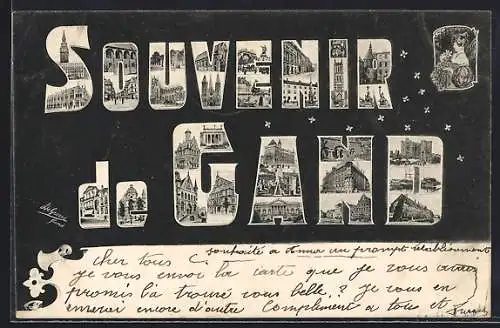 SOUVENIR
de GAND
souhaité a Anna un prompt rétablissement
cher tous
je vous envoi la carte que je vous avais
promis la trouvé vous belle? je vous en
enverai encore d'autre Compliment a tous et